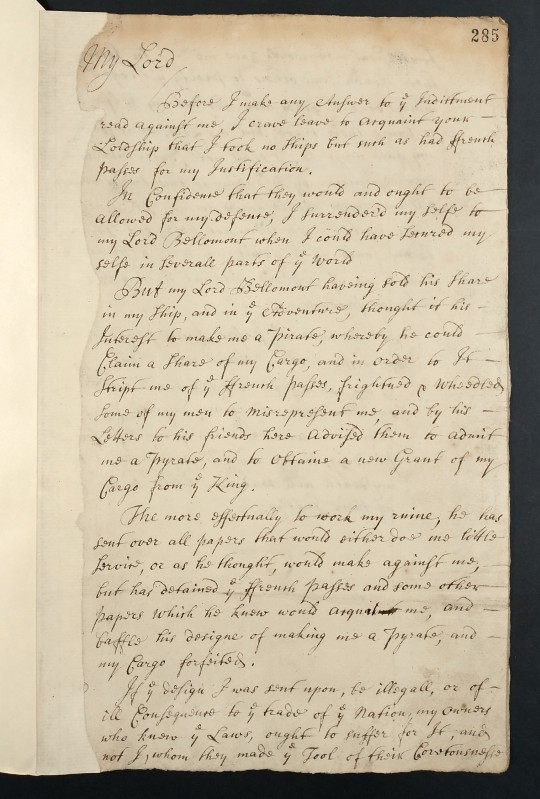 285
My Lord
Before I make any Answer to yͤ Indittment
read against me, I crave leave to acquaint your
Lordship that I took no ships but such as had ffrench
passes for my Justification.
In Confidence that they would and ought to be
allowed for my defence, I surrender'd my selfe to
my Lord Bellomont when I could have secured my
selfe in severall parts of yͤ World
But my Lord Bellomont haveing sold his share
in my ship, and in yͤ Adventure, thought it his
Interest to make me a Pirate, whereby he could
Claim a share of my Cargo, and in order to It
stript me of yͤ ffrench passes, frightned & wheedled
some of my men to misrepresent me, and by his
Letters to his friends here advised them to admit
me a Pyrate, and to obtaine a new Grant of my
Cargo from yͤ King.
The more effectually to work my ruine, he has
sent over all papers that would either doe me little
service, or as he thought, would make against me,
but has detained yͤ ffrench passes and some other
papers which he knew would acquit me, and
baffle his designe of making me a Pyrate, and
my Cargo forfeited.
If yͤ design I was sent upon, be illegall, or of
ill Consequence to yͤ trade of yͤ Nation, my owners
who knew yͤ Laws, ought to suffer for It, and
not I, whom they made yͤ Tool of their Covetousnesse